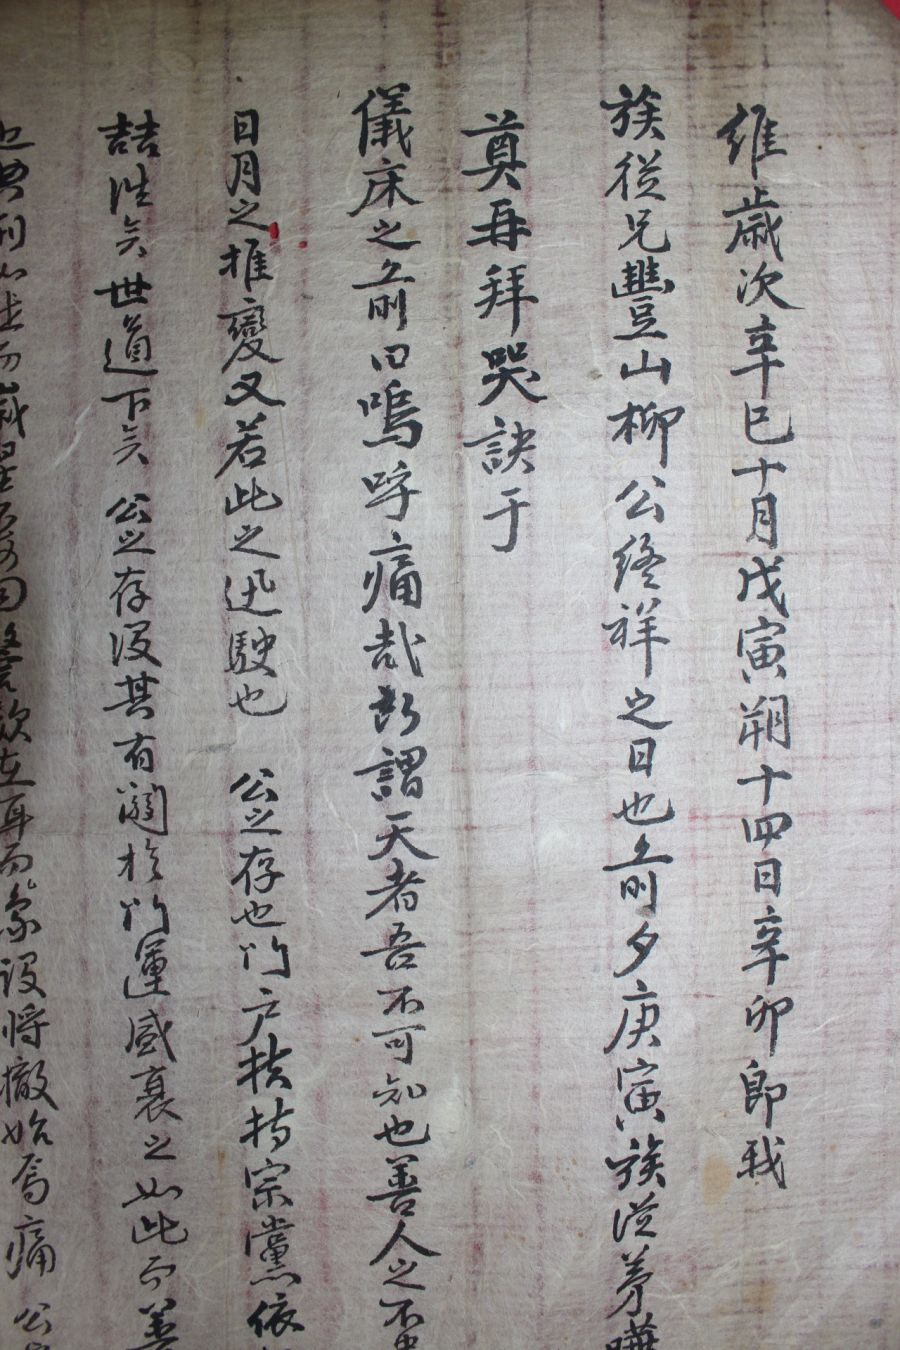 維歲次辛巳十月戊寅朔十四日辛卯卽我
族從兄豐山柳公終祥之日也前夕庚寅族從弟
奠再拜哭訣于
儀床之前曰嗚呼痛哉所謂天者吾不可知也善人之不
日月之推變又若此之迅駛也 公之存也門戶扶持宗黨依
喆往矣世道下矣 公之存沒其有關於門運盛衰之如此而
典刑 而歲 在耳而象設將撤始焉痛 公